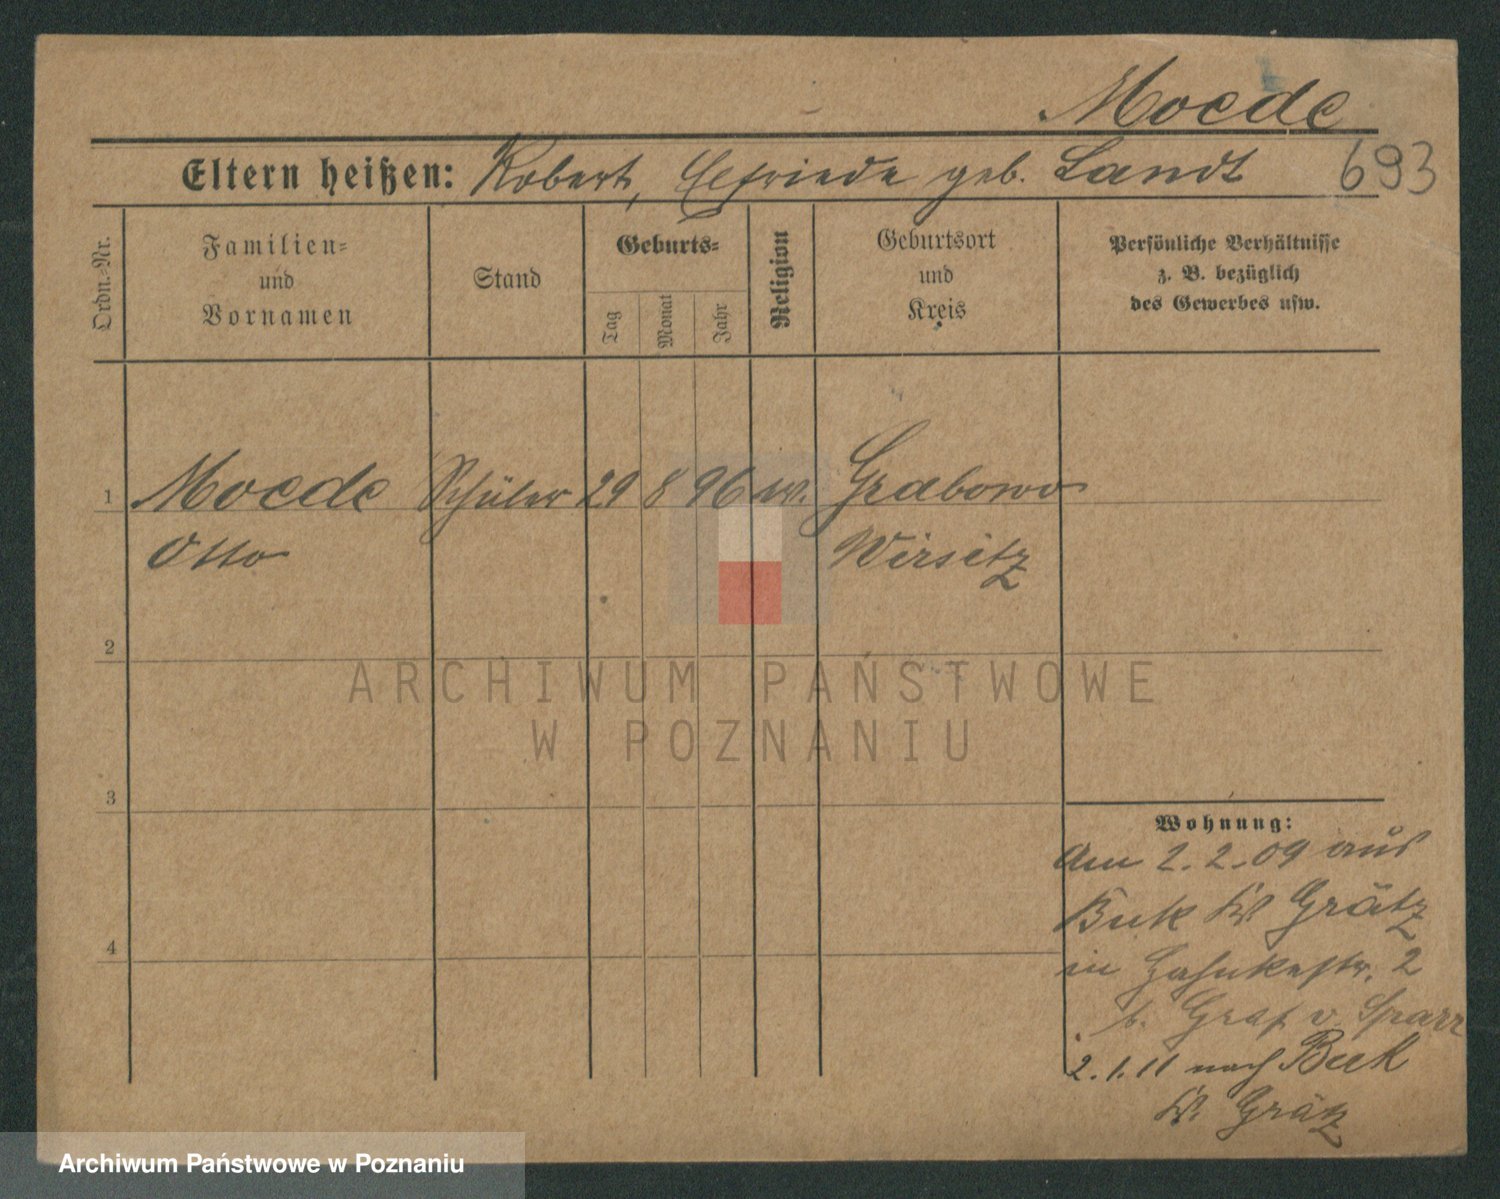 Moede
Eltern heißen: Robert, Elfriede geb. Landt 693
Ordn.-Nr.
Familien-
und
Vornamen
Stand
Geburts-
Tag
Monat
Jahr
Religion
Geburtsort
und
Kreis
Persönliche Verhältnisse
z. B. bezüglich
des Gewerbes usw.
1 Moede Schüler 29 8 96 ev. Grabowo
Otto Wirsitz
2
3
4
Wohnung:
Am 2.2.09 aus
Buk Kr. Grätz
in Hohnkestr. 2
b. Graf v. Sparr
2.1.11 nach Buk
Kr. Grätz
ARCHIWUM PAŃSTWOWE
W POZNANIU
Archiwum Państwowe w Poznaniu